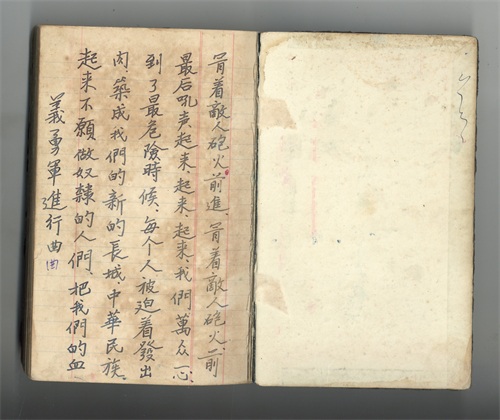 義勇軍進行曲
起来不願做奴隸的人們、把我們的血
肉、築成我們的新的長城、中華民族、
到了最危險時候、每个人被迫着發出
最后吼声起来、起来、起来、我們萬众一心、
冐着敵人砲火前進、冐着敵人砲火前